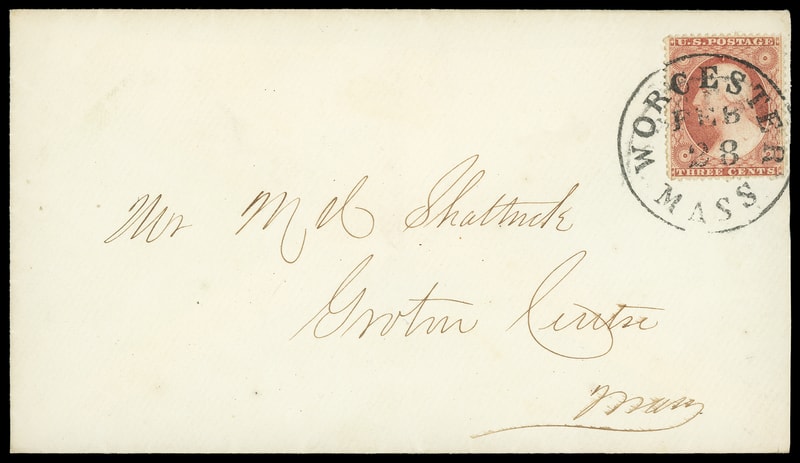 U.S. POSTAGE
THREE CENTS
WORCESTER
FEB
28
MASS
Shattuck
Groton Centre
Mass